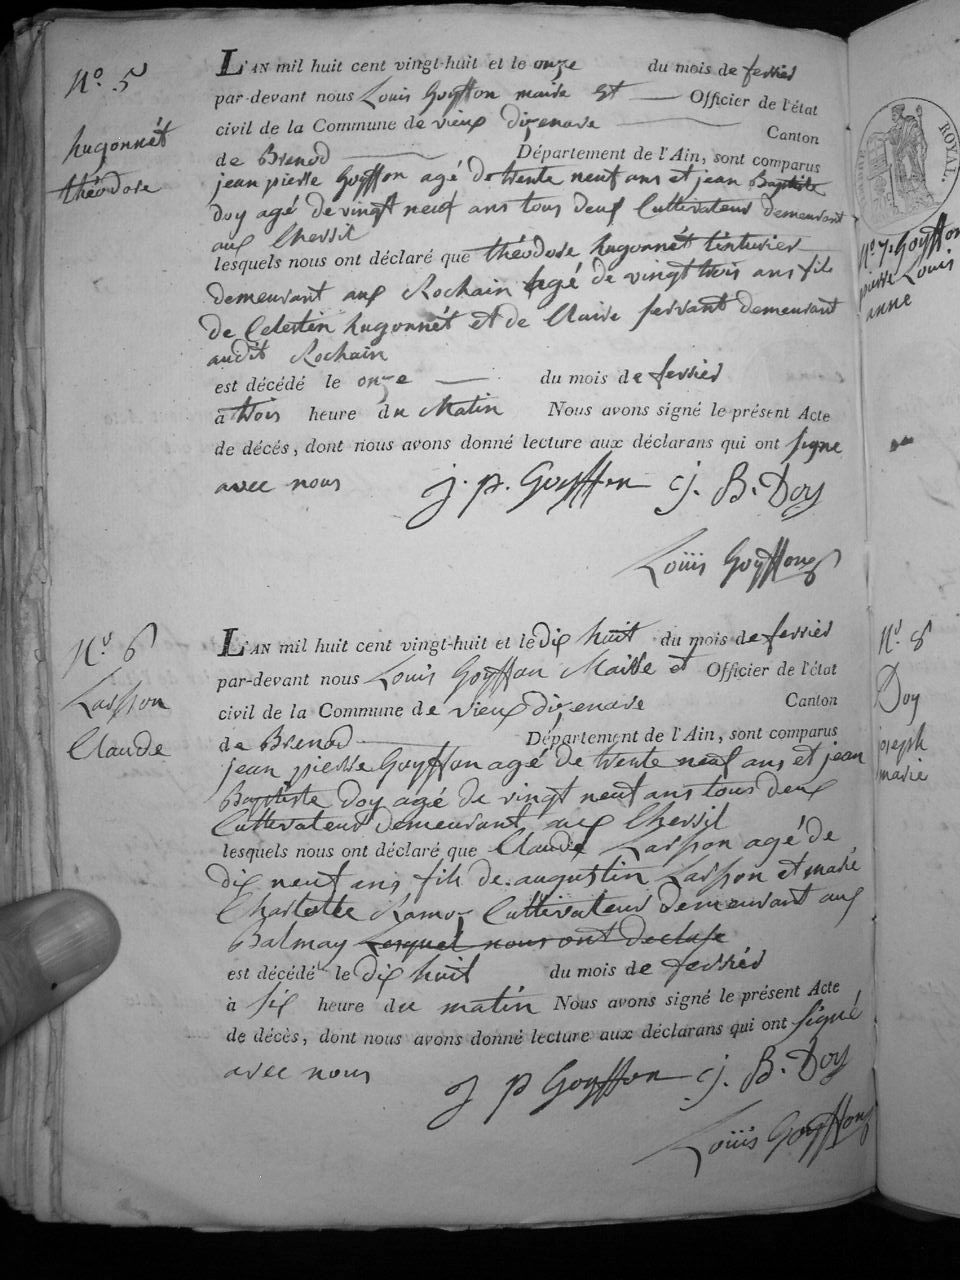 N.o 5
hugonnét
théodore
L'AN mil huit cent vingt-huit et le onze du mois de fevrier
par-devant nous Louis Goyffon maire et Officier de l'état
civil de la Commune de vieux dizenave Canton
de Brenod Département de l'Ain, sont comparus
jean pierre Goyffon agé de trente neuf ans et jean Baptiste
doy agé de vingt neuf ans tous deux Cultivateur demeurant
aux Chevril
lesquels nous ont déclaré que théodore hugonnét tinturier
demeurant aux Rochain agé de vingt trois ans fils
de Celestin hugonnét et de Claire servant demeurant
audit Rochain
est décédé le onze du mois de fevrier
à trois heure du Matin Nous avons signé le présent Acte
de décés, dont nous avons donné lecture aux déclarans qui ont signe
avec nous j. p. Goyffon j. B. Doy
Louis Goyffon
N.o 6
Larsson
Claude
L'AN mil huit cent vingt-huit et le dix huit du mois de fevrier
par-devant nous Louis Goyffon Maire et Officier de l'état
civil de la Commune de vieux dizenave Canton
de Brenod Département de l'Ain, sont comparus
jean pierre Goyffon agé de trente neuf ans et jean
Baptiste doy agé de vingt neuf ans tous deux
Cultivateur demeurant aux Chevril
lesquels nous ont déclaré que Claude Larsson agé de
dix neuf ans fils de augustin Larsson et marie
Charlotte Ramoz Cultivateur demeurant aux
Balmay Lesquel nous ont declase
est décédé le dix huit du mois de fevrier
à six heure du matin Nous avons signé le présent Acte
de décès, dont nous avons donné lecture aux déclarans qui ont signé
avec nous j p Goyffon j. B. Doy
Louis Goyffon
ROYAL.
N.o 7. Goyffon
pierre Louis
anne
N.o 8
Doy
joseph
marie